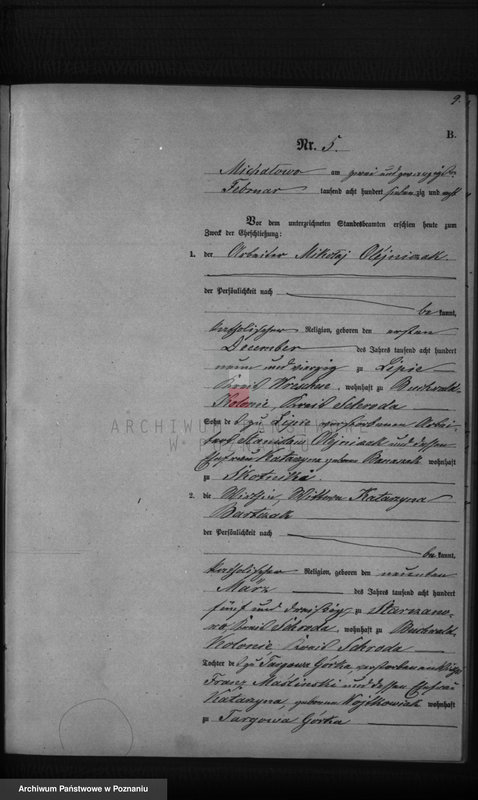 9.
B.
Nr. 5.
Michałowo am zwei und zwanzigsten
Februar tausend acht hundert siebenzig und acht
Vor dem unterzeichneten Standesbeamten erschien heute zum
Zweck der Eheschließung:
1. der Arbeiter Mikołaj Olejniczak
der Persönlichkeit nach
bekannt,
katholischer Religion, geboren den ersten
December des Jahres tausend acht hundert
neun und vierzig zu Lipie
Kreis Wreschen, wohnhaft zu Buchwald
Kolonie, Kreis Schroda
Sohn des zu Lipie verstorbenen Arbei-
ters Stanislaw Olejniczak und dessen
Ehefrau Katarzyna geboren wohnhaft
zu
2. die Wittwe Katarzyna
Bartczak
der Persönlichkeit nach
bekannt,
katholischer Religion, geboren den neunten
März des Jahres tausend acht hundert
fünf und dreißig zu
Kreis Schroda, wohnhaft zu Buchwald
Kolonie Kreis Schroda
Tochter des zu Targowa Górka verstorbenen
Franz Maśliński und dessen Ehefrau
Katarzyna, geborene Wojtkowiak wohnhaft
zu Targowa Górka
ARCHIWUM PAŃSTWOWE
W POZNANIU
Archiwum Państwowe w Poznaniu